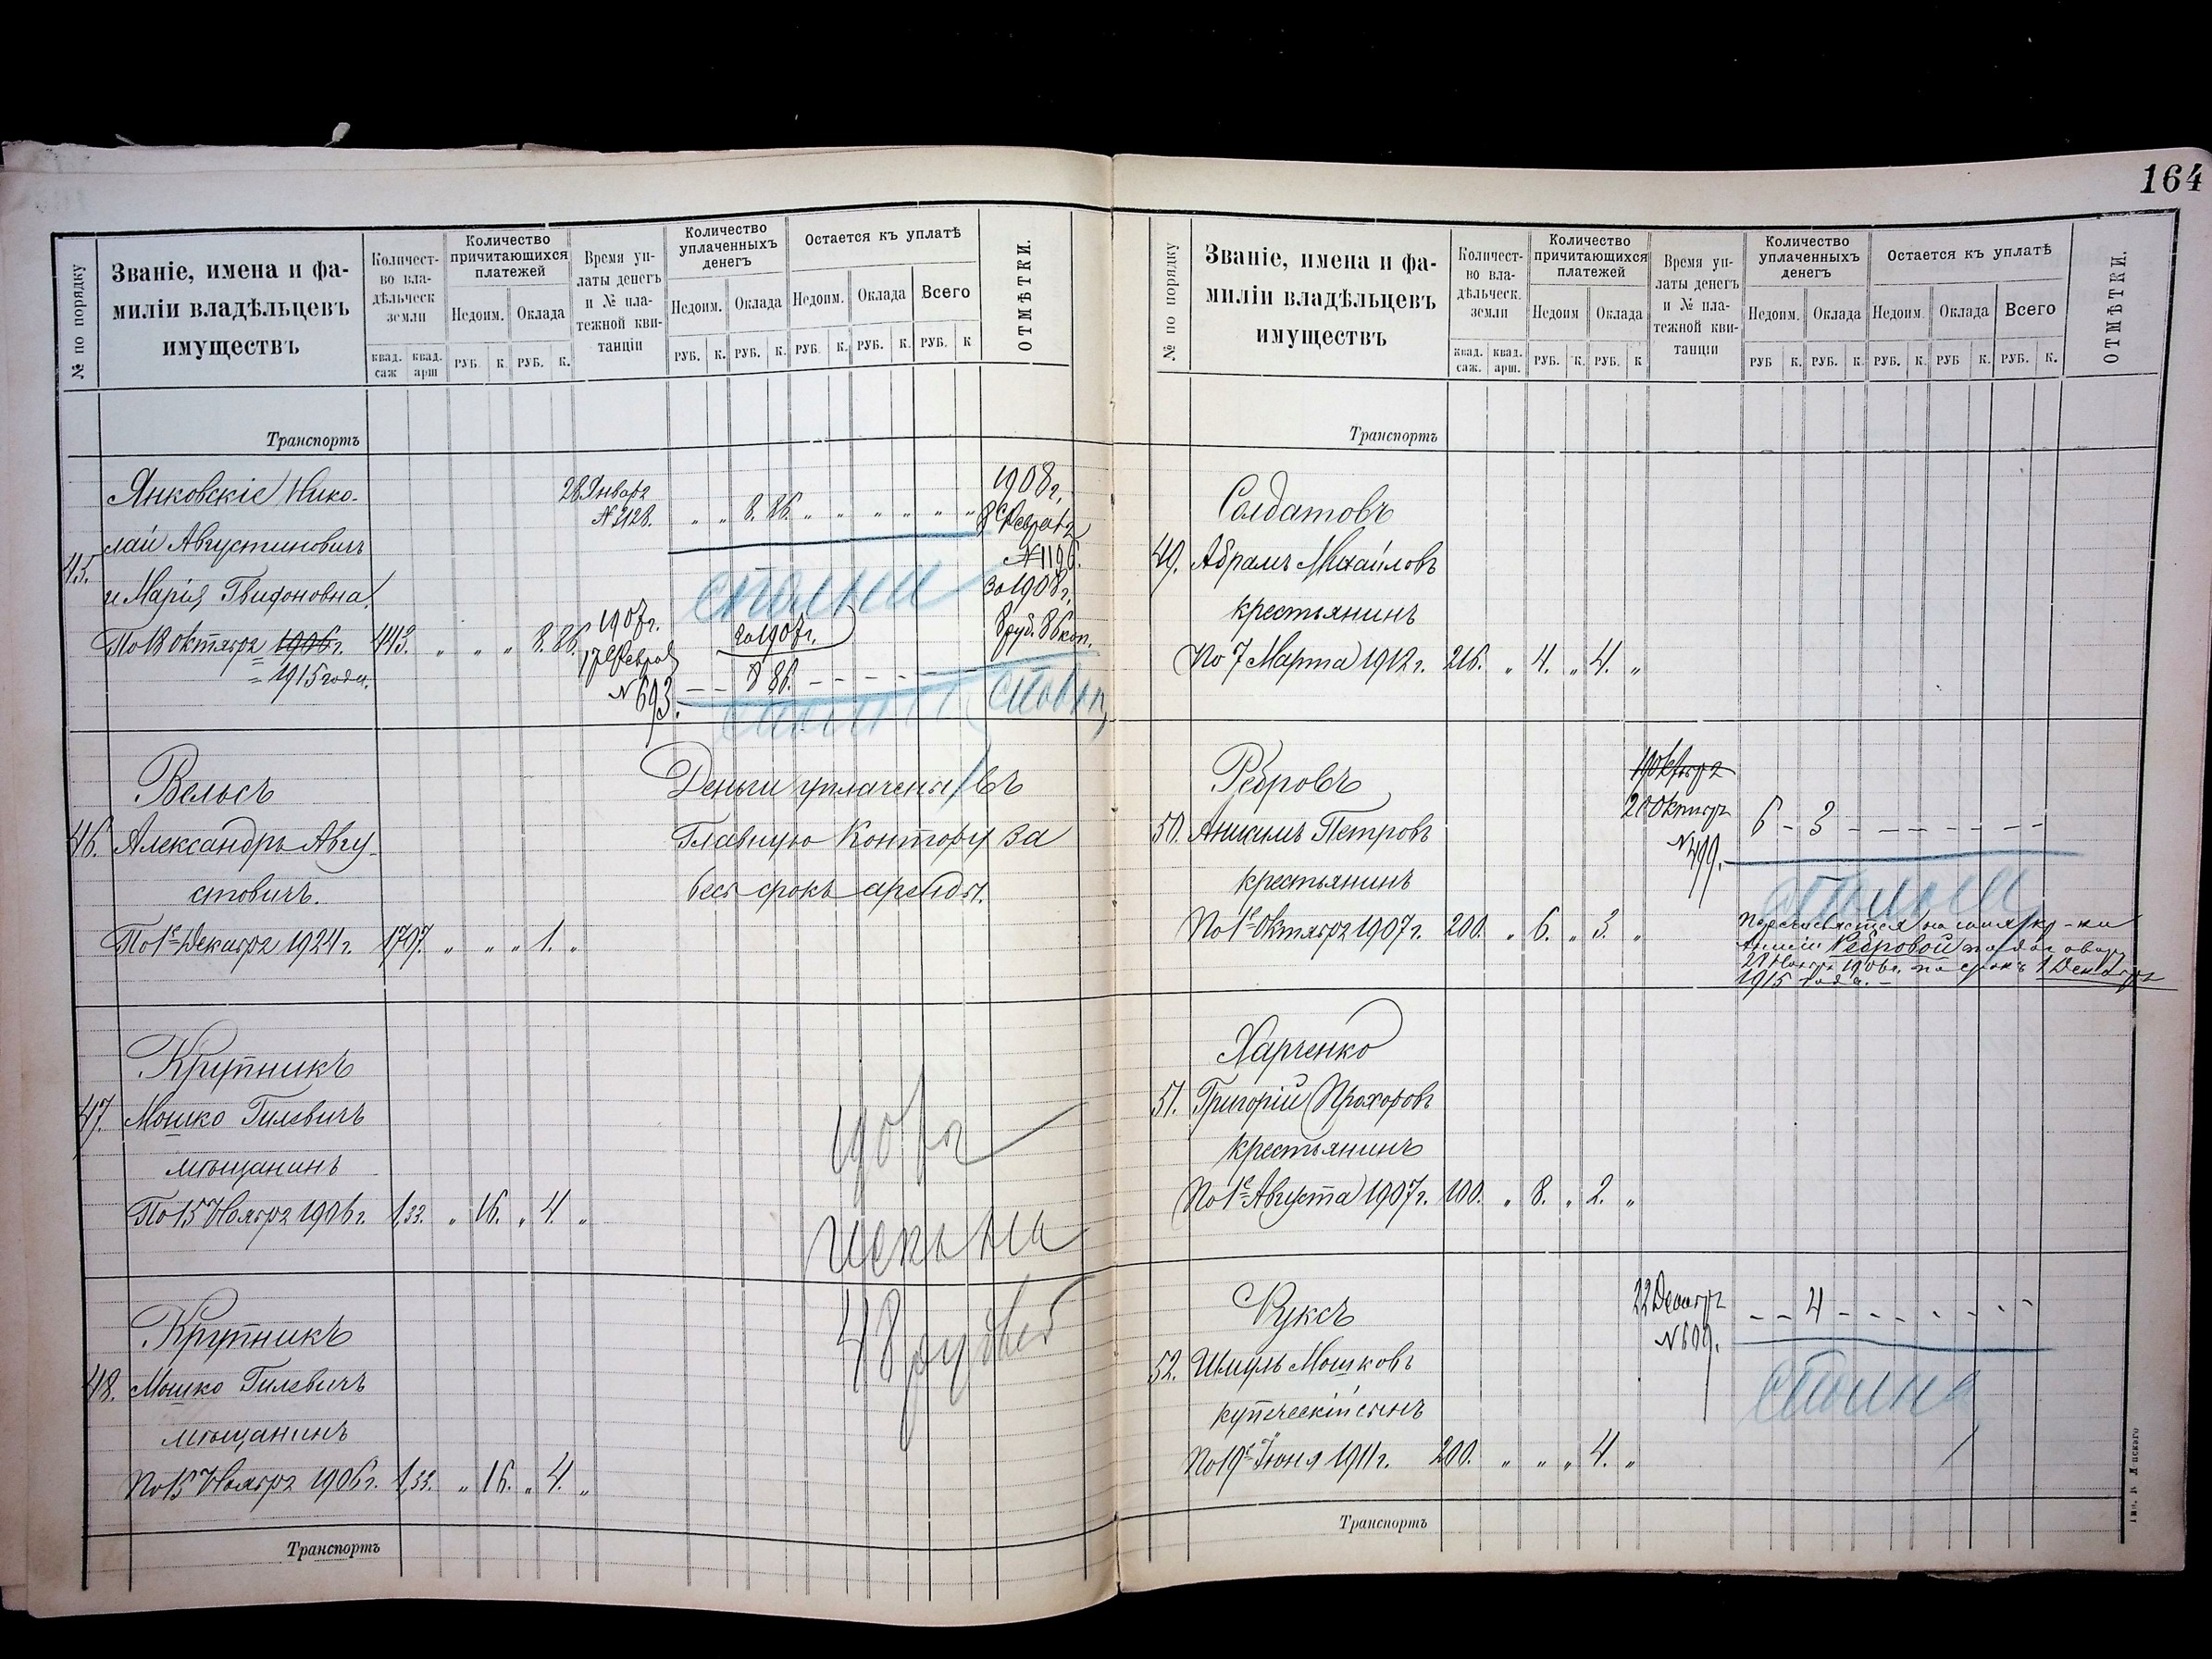 164
№ по порядку
Званіе, имена и фа-
миліи владѣльцевъ
имуществъ
Количест-
во вла-
дѣльческ
земли
квад. саж квад. арш
Количество
причитающихся
платежей
Недоим. Оклада
РУБ. К. РУБ. К.
Время уп-
латы денегъ
и № пла-
тежной кви-
танціи
Количество
уплаченныхъ
денегъ
Недоим. Оклада
РУБ. К. РУБ. К.
Остается къ уплатѣ
Недоим. Оклада Всего
РУБ. К. РУБ. К. РУБ. К
ОТМѢТКИ.
Транспортъ
Янковскіе Нико-
лай Августиновичъ
45.
и Марія
По 18 октября 1906 г. 443. " " " 8. 86.
= 1915 года.
28 Января
№ 2128. " " 8. 86. " " " " " "
1907 г.
17 Февраля
№ 693. - - 8 86. - - - - -
за 1907 г.
1908 г.
8 Февраля
№ 1196.
За 1908 г.
8 руб. 86 коп.
Вельсъ
46. Александръ Авгу-
стовичъ.
По 1е Декабря 1924 г. 1797. " " " 1. "
Деньги уплачены въ
Главную Контору за
весь срокъ аренды.
Крупникъ
47. Мошко Гилевичъ
мѣщанинъ
По 15 Ноября 1906 г. 1,33. " 16. " 4. "
48 рублей
Крупникъ
48. Мошко Гилевичъ
мѣщанинъ
По 15 Ноября 1906 г. 1,33. " 16. " 4. "
Транспортъ
№ по порядку
Званіе, имена и фа-
миліи владѣльцевъ
имуществъ
Количест-
во вла-
дѣльческ.
земли
квад. саж. квад. арш.
Количество
причитающихся
платежей
Недоим Оклада
РУБ. К. РУБ. К
Время уп-
латы денегъ
и № пла-
тежной кви-
танціи
Количество
уплаченныхъ
денегъ
Недоим. Оклада
РУБ К. РУБ. К.
Остается къ уплатѣ
Недоим. Оклада Всего
РУБ. К. РУБ К. РУБ. К.
ОТМѢТКИ.
Транспортъ
Солдатовъ
49. Абрамъ Михайловъ
крестьянинъ
По 7 Марта 1912 г. 216. " 4. " 4. "
Ребровъ
50. Петровъ
крестьянинъ
По 1е Октября 1907 г. 200. " 6. " 3. "
1 Октября
2 Октября
№ 499. 6 - 3 - - - - - - -
Ребровой
1906 г. на срокъ 1 Декабря
1915 года. -
Харченко
51. Григорій Прохоровъ
крестьянинъ
По 1е Августа 1907 г. 100. " 8. " 2. "
Руксъ
52. Шмуль Мошковъ
купеческій сынъ
По 19е Іюня 1911 г. 200. " " " 4. "
22 Декабря
№ 609. - - 4 - - - - - - -
Транспортъ